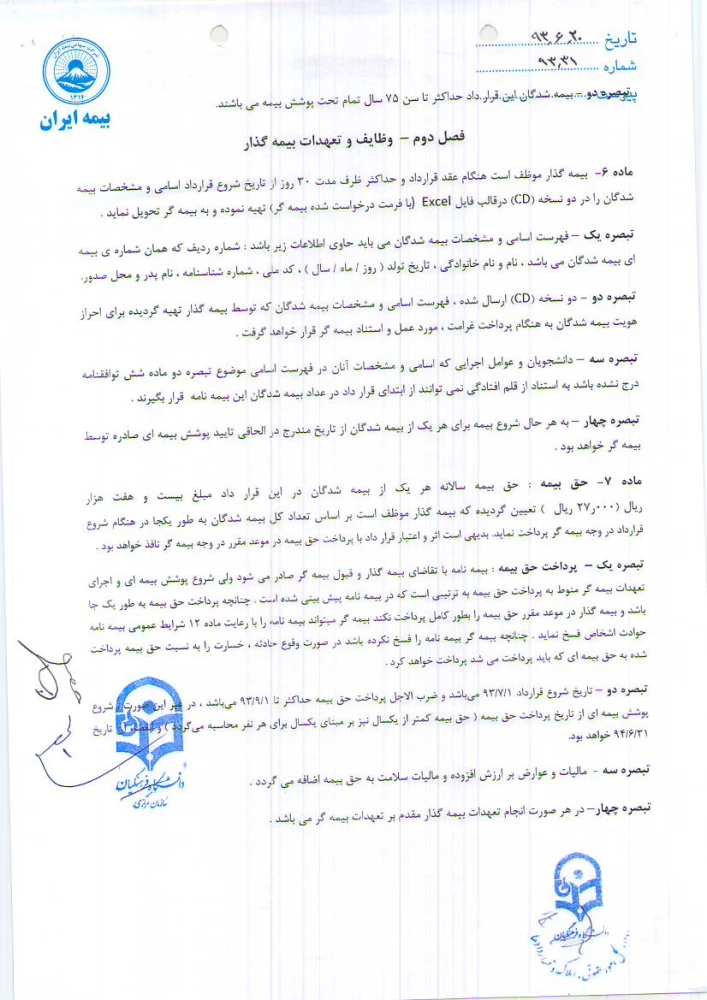 تاریخ ۹۳٫۶٫۲۰
شماره ۹۳٫۳۱
پیوست
شرکت سهامی بیمه ایران
۱۳۱۴
بیمه ایران
تبصره دو – بیمه شدگان این قرار داد حداکثر تا سن ۷۵ سال تمام تحت پوشش بیمه می باشند.
فصل دوم – وظایف و تعهدات بیمه گذار
ماده ۶- بیمه گذار موظف است هنگام عقد قرارداد و حداکثر ظرف مدت ۳۰ روز از تاریخ شروع قرارداد اسامی و مشخصات بیمه
شدگان را در دو نسخه (CD) درقالب فایل Excel (با فرمت درخواست شده بیمه گر) تهیه نموده و به بیمه گر تحویل نماید .
تبصره یک – فهرست اسامی و مشخصات بیمه شدگان می باید حاوی اطلاعات زیر باشد : شماره ردیف که همان شماره ی بیمه
ای بیمه شدگان می باشد ، نام و نام خانوادگی ، تاریخ تولد ( روز / ماه / سال ) ، کد ملی ، شماره شناسنامه ، نام پدر و محل صدور.
تبصره دو – دو نسخه (CD) ارسال شده ، فهرست اسامی و مشخصات بیمه شدگان که توسط بیمه گذار تهیه گردیده برای احراز
هویت بیمه شدگان به هنگام پرداخت غرامت ، مورد عمل و استناد بیمه گر قرار خواهد گرفت .
تبصره سه – دانشجویان و عوامل اجرایی که اسامی و مشخصات آنان در فهرست اسامی موضوع تبصره دو ماده شش توافقنامه
درج نشده باشد به استناد از قلم افتادگی نمی توانند از ابتدای قرار داد در عداد بیمه شدگان این بیمه نامه قرار بگیرند .
تبصره چهار – به هر حال شروع بیمه برای هر یک از بیمه شدگان از تاریخ مندرج در الحاقی تایید پوشش بیمه ای صادره توسط
بیمه گر خواهد بود .
ماده ۷- حق بیمه : حق بیمه سالانه هر یک از بیمه شدگان در این قرار داد مبلغ بیست و هفت هزار
ریال (۲۷٫۰۰۰ ریال ) تعیین گردیده که بیمه گذار موظف است بر اساس تعداد کل بیمه شدگان به طور یکجا در هنگام شروع
قرارداد در وجه بیمه گر پرداخت نماید. بدیهی است اثر و اعتبار قرار داد با پرداخت حق بیمه در موعد مقرر در وجه بیمه گر نافذ خواهد بود .
تبصره یک – پرداخت حق بیمه : بیمه نامه با تقاضای بیمه گذار و قبول بیمه گر صادر می شود ولی شروع پوشش بیمه ای و اجرای
تعهدات بیمه گر منوط به پرداخت حق بیمه به ترتیبی است که در بیمه نامه پیش بینی شده است . چنانچه پرداخت حق بیمه به طور یک جا
باشد و بیمه گذار در موعد مقرر حق بیمه را بطور کامل پرداخت نکند بیمه گر میتواند بیمه نامه را با رعایت ماده ۱۲ شرایط عمومی بیمه نامه
حوادث اشخاص فسخ نماید . چنانچه بیمه گر بیمه نامه را فسخ نکرده باشد در صورت وقوع حادثه ، خسارت را به نسبت حق بیمه پرداخت
شده به حق بیمه ای که باید پرداخت می شد پرداخت خواهد کرد .
تبصره دو – تاریخ شروع قرارداد ۹۳/۷/۱ می‌باشد و ضرب الاجل پرداخت حق بیمه حداکثر تا ۹۳/۹/۱ می‌باشد ، در غیر این صورت شروع
پوشش بیمه ای از تاریخ پرداخت حق بیمه ( حق بیمه کمتر از یکسال نیز بر مبنای یکسال برای هر نفر محاسبه می‌گردد ) و تاریخ
۹۴/۶/۳۱ خواهد بود.
تبصره سه – مالیات و عوارض بر ارزش افزوده و مالیات سلامت به حق بیمه اضافه می گردد .
تبصره چهار– در هر صورت انجام تعهدات بیمه گذار مقدم بر تعهدات بیمه گر می باشد .
دانشگاه فرهنگیان
سازمان مرکزی
دانشگاه فرهنگیان